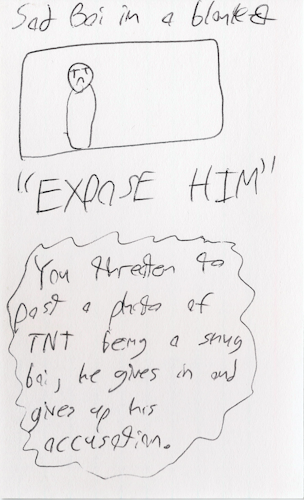 Sad Boi in a blanket
TT
"EXPOSE HIM"
You threaten to
post a photo of
TNT being a snug
boi, he gives in and
gives up his
accusation.